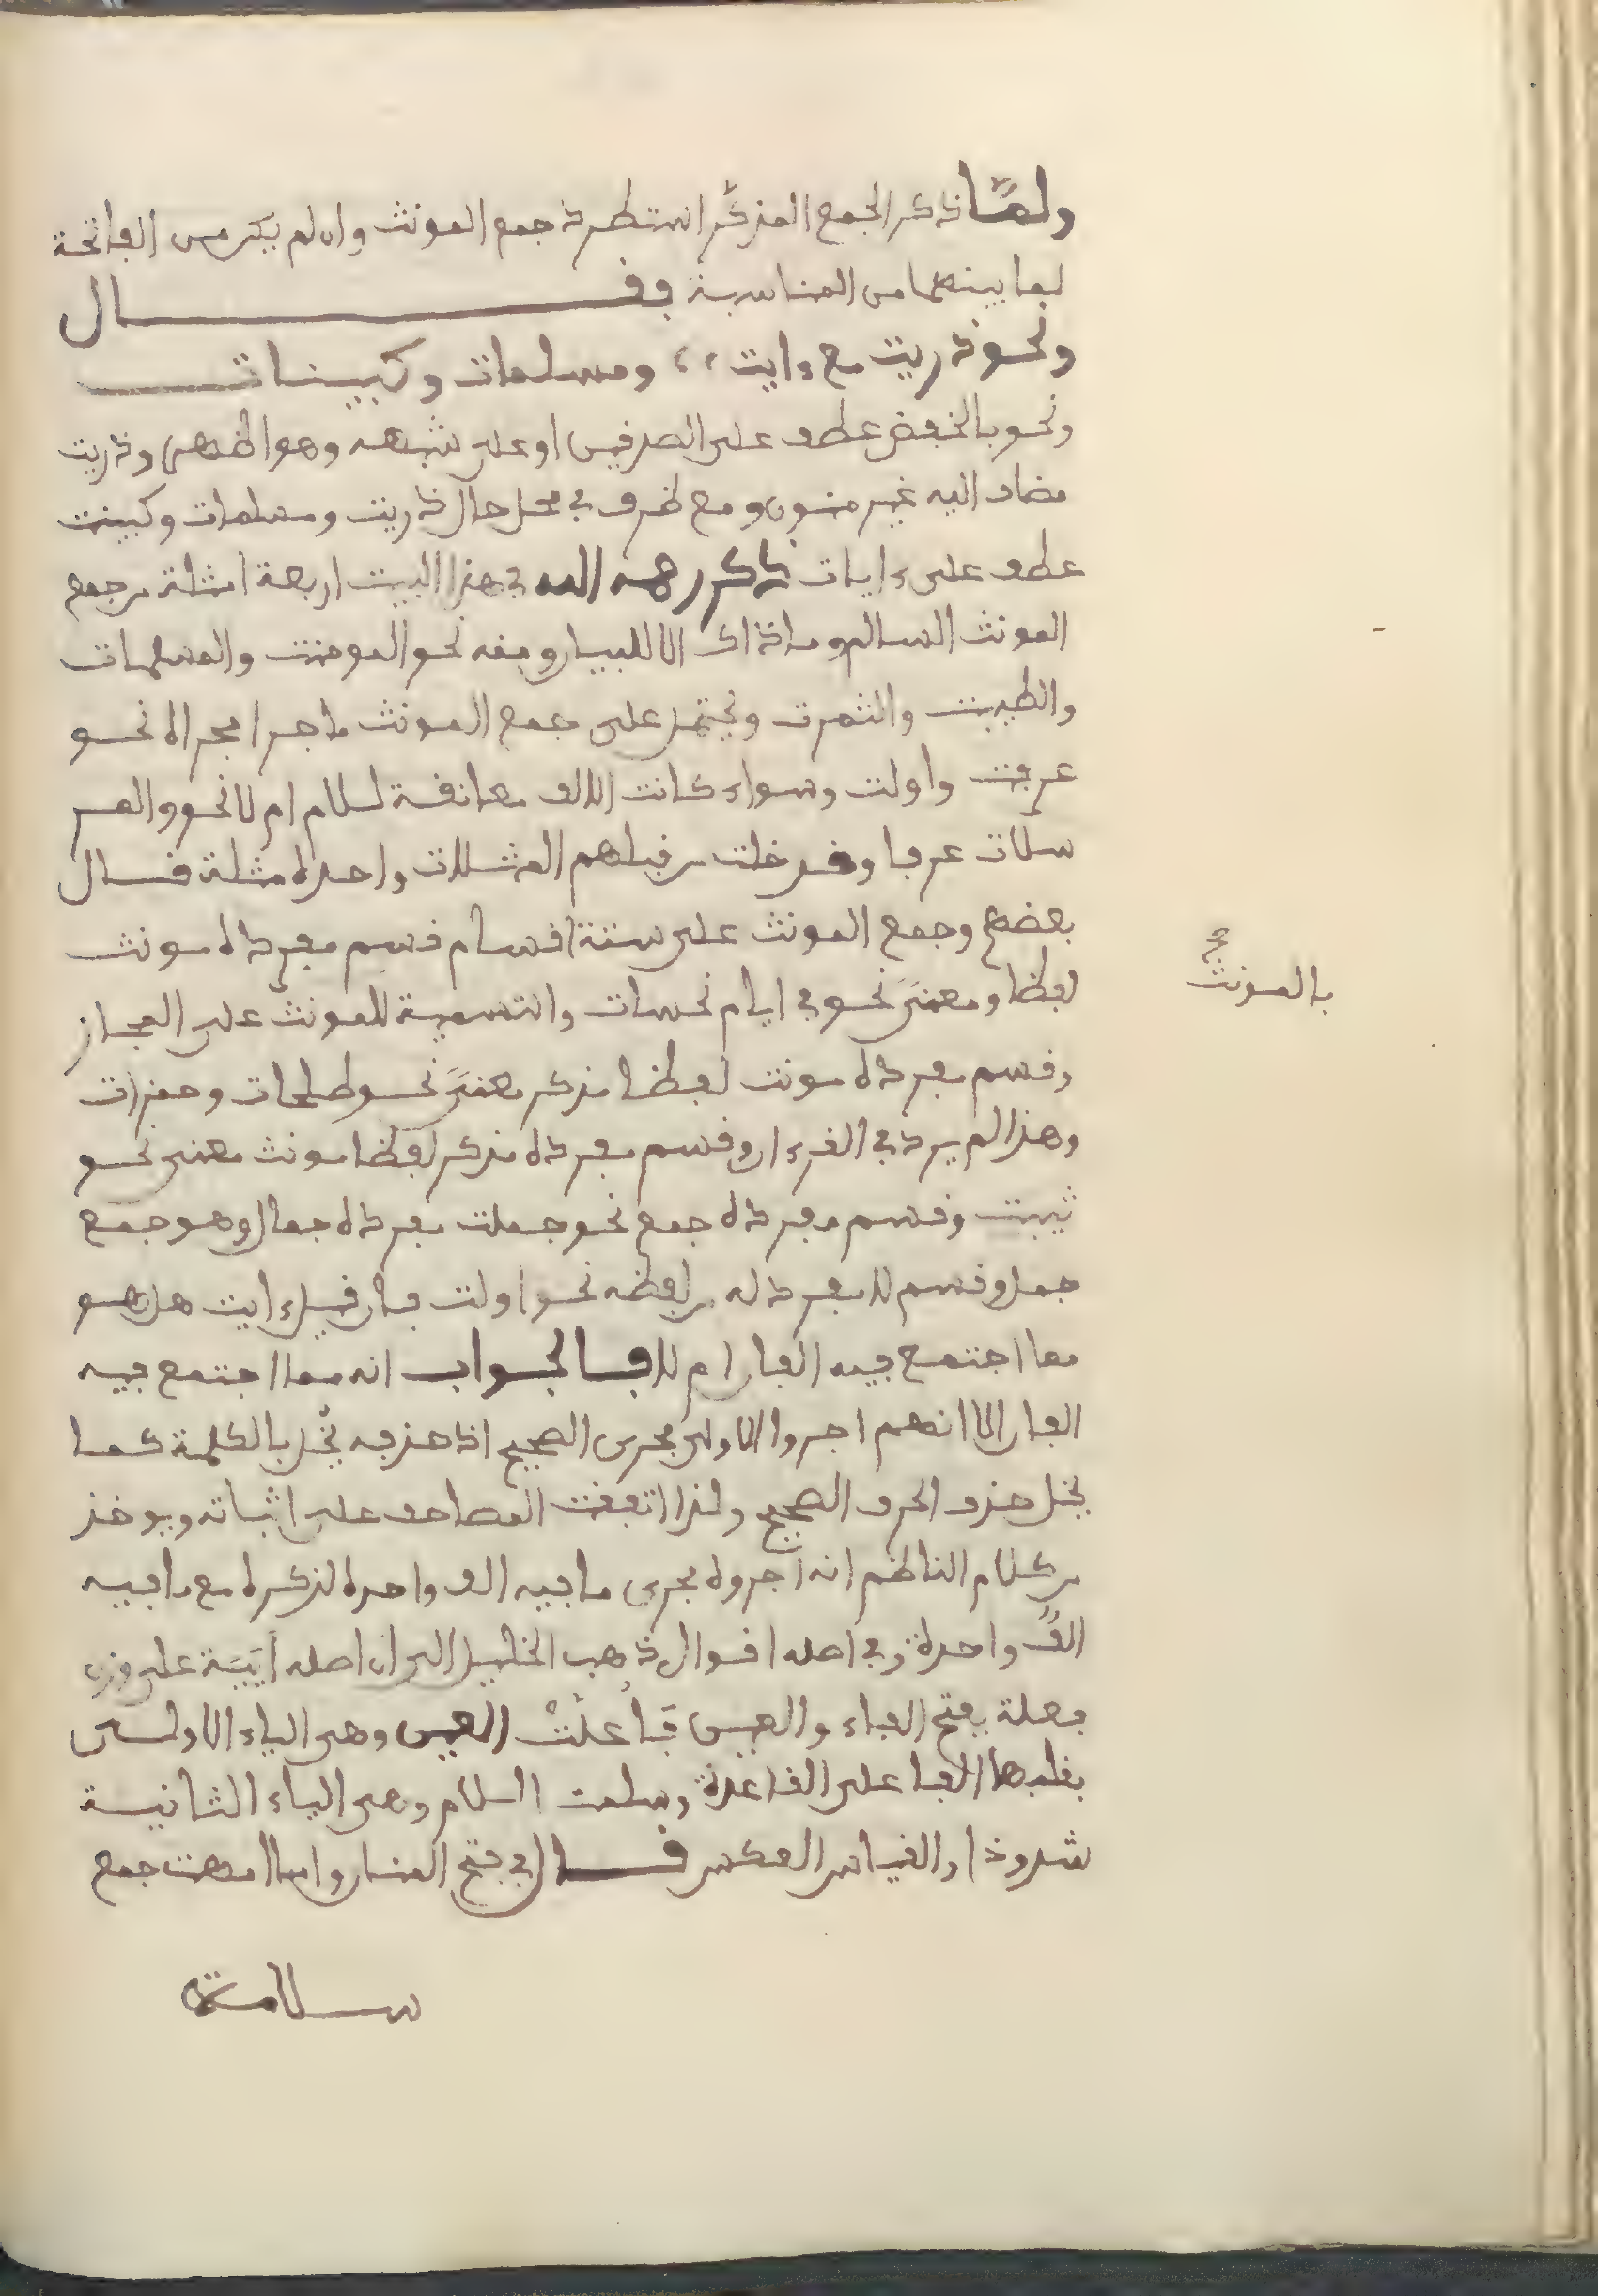 ولما ذكر الجمع المذكر استطرد جمع المونث وان لم يكن من الفاتحة
لما بينهما من المناسبة فقال
ونحو ذريت مع ءايت ،، ومسلمات وكبينات
ونحو بالخفض عطف على الصدفين او على شبهه وهو اظهر وذريت
مضاف اليه غير منون ومع ظرف في محل حال ذريت ومسلمات وكبينت
عطف على ءايات ذكر رحمه الله في هذا البيت اربعة امثلة من جمع
المونث السالم وما ذاك الا للبيان ومنه نحو المومنت والمسلمات
والطيبت والثمرت ويحتمل على جمع المونث ما جرا مجراه نحو
عرفت واولت وسواء كانت الالف معانقة للام ام لا نحو والمر
سلات عرفا وقد خلت من قبلهم المثلات واحده مثلة قال
بعضهم وجمع المونث على ستة اقسام قسم مفرده مونث
لفظا ومعنى نحو في ايام نحسات والتسمية للمونث على المجاز
وقسم مفرده مونث لفظا مذكر معنى نحو طلحات وحمزات
وهذا لم يرد في القرءان وقسم مفرده مذكر لفظا مونث معنى نحو
ثيبت وقسم مفرده جمع نحو جملت مفرده جمال وهو جمع
جمل وقسم لا مفرد له من لفظه نحو اولت فان قيل ءايت هل هو
مما اجتمع فيه الفان ام لا فالجواب انه مما اجتمع فيه
الفان الا انهم اجروا الاولى مجرى الصحيح اذ حذفه يخل بالكلمة كما
يخل حذف الحرف الصحيح ولذا اتفقت المصاحف على اثباته ويوخذ
من كلام الناظم انه اجروه مجرى ما فيه الف واحدة لذكره مع ما فيه
الف واحدة وفي اصله اقوال ذهب الخليل الى ان اصله أيَيَة على وزن
فعلة بفتح الفاء والعين فأعلت العين وهي الياء الاولى
بقلبها الفا على القاعدة وسلمت اللام وهي الياء الثانية
شذوذا والقياس العكس قال في فتح المنان واما امهت جمع
سلامة
بالمونث
صح